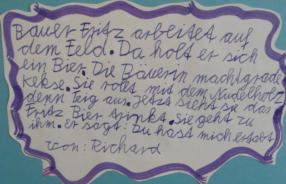 Bauer Fritz arbeitet auf
dem Feld. Da holt er sich
ein Bier. Die Bäuerin macht grade
Kekse. Sie rollt mit dem Nudelholz
denn Teig aus. Jetzt sieht sie das
Fritz Bier trinkt. sie geht zu
ihm. er sagt: Du hast mich ertabt
von: Richard